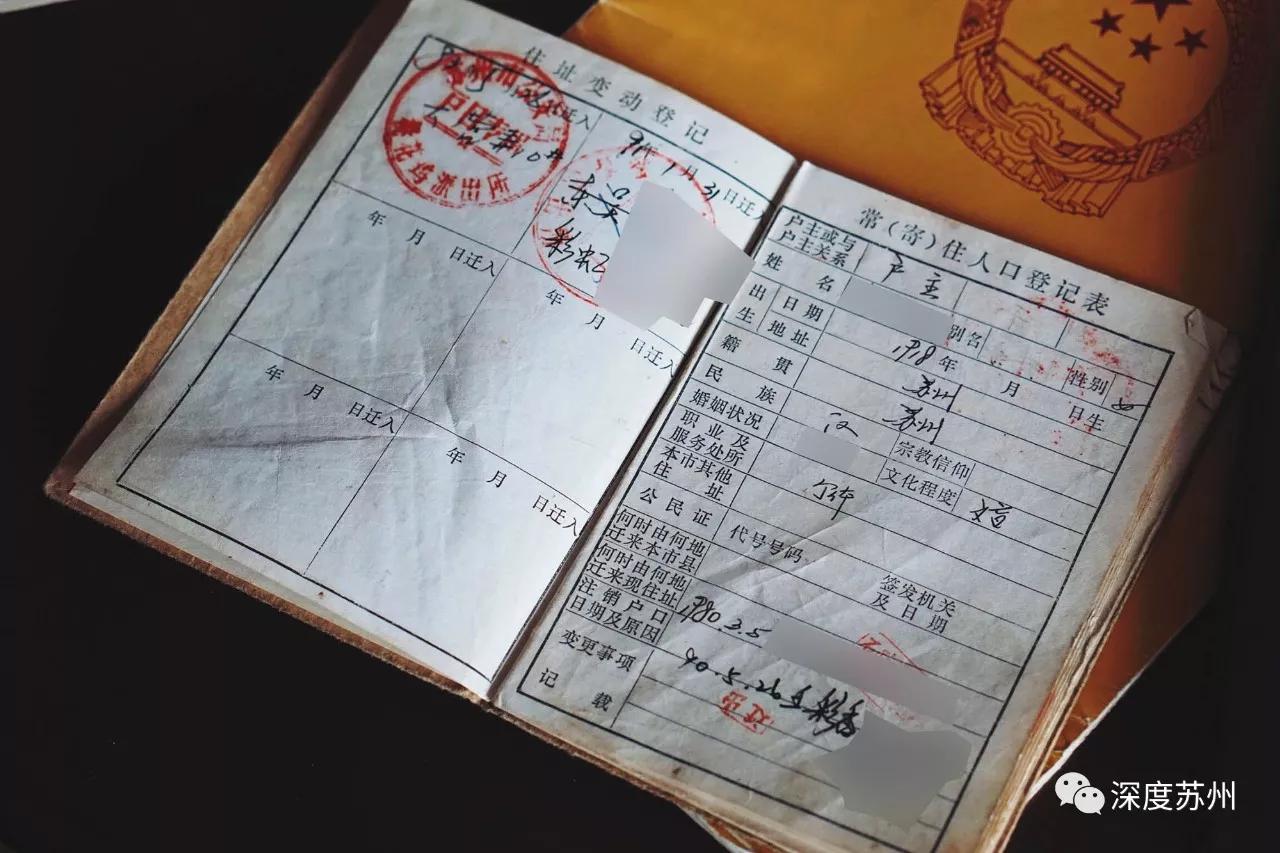 住址变动登记
月 日迁入
桃花坞派出所
91年1月31日迁入
东吴
彩虹
年 月 日迁入
年 月 日迁入
年 月 日迁入
年 月 日迁入
常(寄)住人口登记表
户主或与户主关系 户主
姓名 别名 性别 女
出生 日期 1918年 月 日生
地址 苏州
籍贯 苏州
民族 汉 宗教信仰
婚姻状况 文化程度 文盲
职业及服务处所 个体
本市其他住址
公民证 代号号码 签发机关及日期
何时由何地迁来本市县
何时由何地迁来现住址 1980.3.5
注销户口日期及原因 90.5.29 迁彩香
迁出
变更事项记载
深度苏州